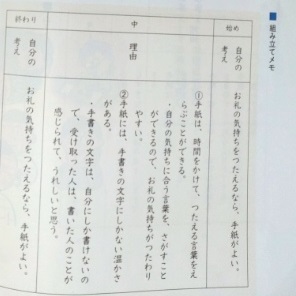 ■組み立てメモ
始め
自分の
考え
お札の気持ちをつたえるなら、手紙がよい。
中
理由
①手紙は、時間をかけて、つたえる言葉をえ
らぶことができる。
・自分の気持ちに合う言葉を、さがすこと
ができるので、お礼の気持ちがつたわり
やすい。
②手紙には、手書きの文字にしかない温かさ
がある。
・手書きの文字は、自分にしか書けないの
で、受け取った人は、書いた人のことが
感じられて、うれしいと思う。
終わり
自分の
考え
お礼の気持ちをつたえるなら、手紙がよい。